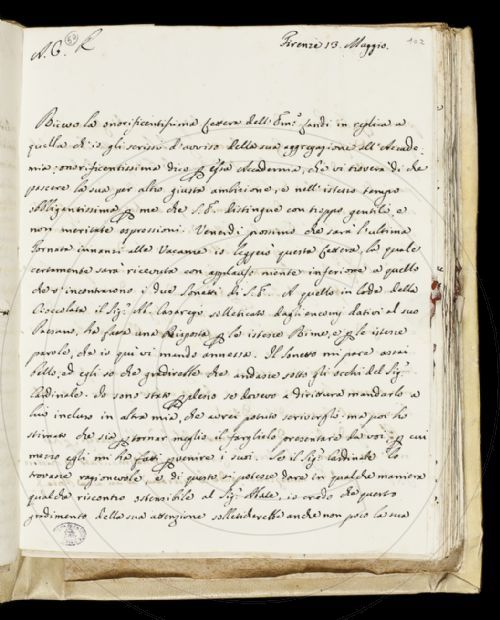 A. C. R
Firenze 13. Maggio.
102
Ricevo la onorificentissima Lettera dell' Em.º Landi in replica a
quella ch' io gli scrissi d'avviso della sua aggregazione all' Accade-
mia: onorificentissima dico p essa Accademia, che vi troverà di che
pascere la sua per altro giusta ambizione, e nell' istesso tempo
obbligantissima p me che S. E. distingue con troppo gentili, e
non meritate espressioni. Venerdì prossimo che sarà l'ultima
Tornata innanzi alle Vacanze io leggerò questa Lettera, la quale
certamente sarà ricevuta con applauso niente inferiore a quello
che incontrarono i due Sonetti di S. E. A quello in lode della
Cioccolata il Sig.r Ab. Casaregi solleticato dagli encomj dativi al suo
Paesano, ha fatta una Risposta p le istesse Rime, e p le istesse
parole, che io qui vi mando annessa. Il Sonetto mi pare assai
bello, ed egli so che gradirebbe che andasse sotto gli occhi del Sig.r
Cardinale. Io sono stato perplesso se dovevo a dirittura mandarlo a
lui incluso in altra mia, che avrei potuto scrivergli: ma poi ho
stimato che sia p tornar meglio il farglielo presentare da voi, p cui
mezzo egli mi ha fatti pvenire i suoi. Se il Sig.r Cardinale lo
trovasse ragionevole e di questo si potesse dare in qualche maniera
qualche riscontro ostensibile al Sig.r Abate, io credo che questo
gradimento della sua attenzione solleticherebbe anche non poco la sua